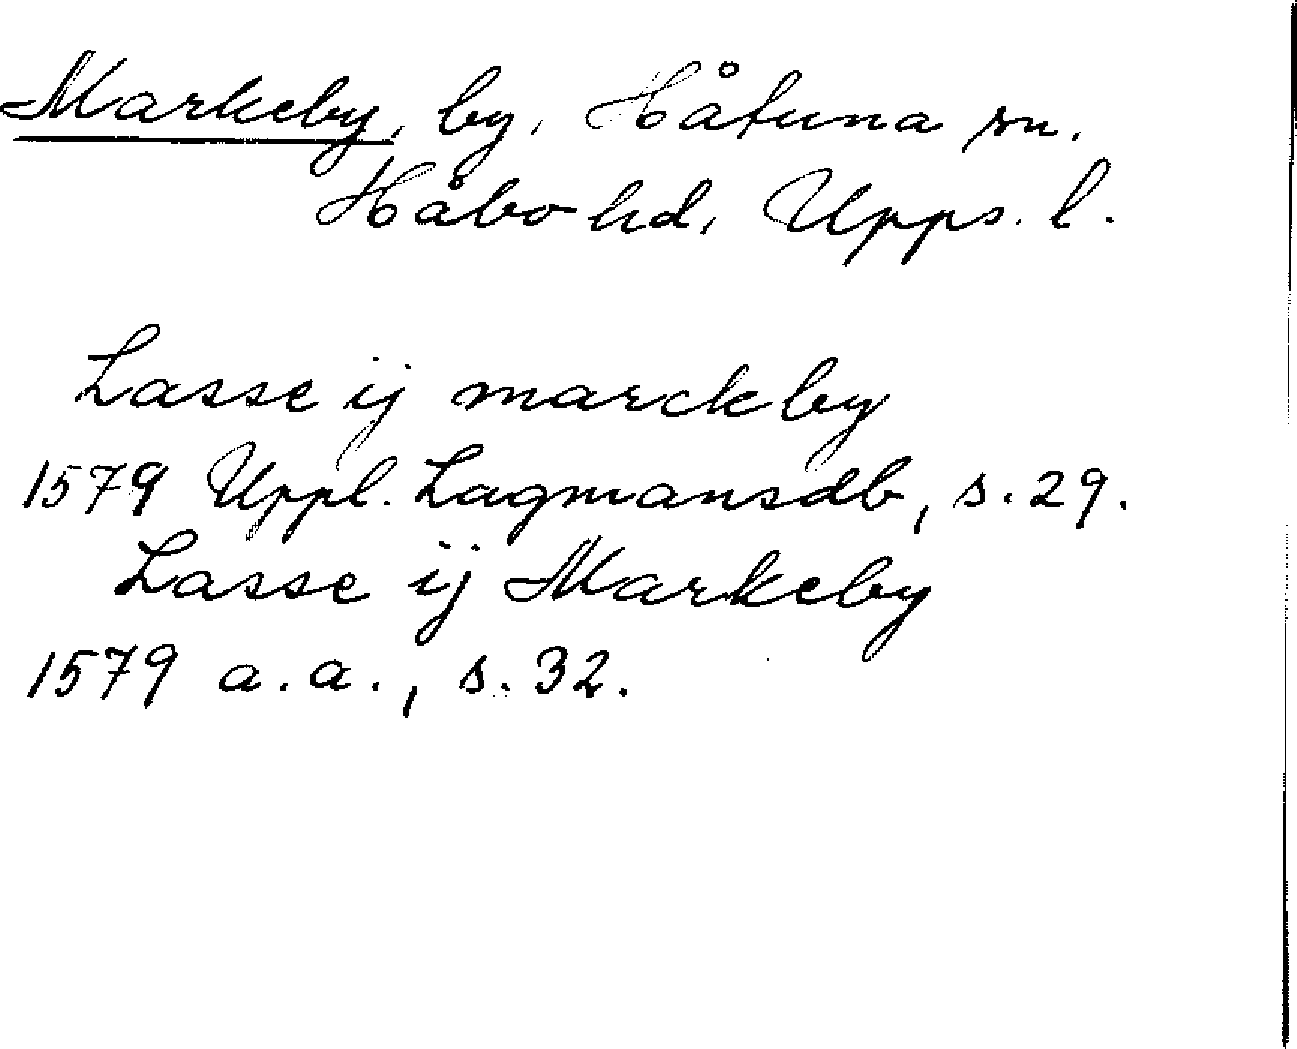 Markeby, by, Håtuna sn.
Håbo hd, Upps. l.
Lasse ij marckby
1579 Uppl. Lagmansdb, s. 29.
Lasse ij Markeby
1579 a.a., s. 32.